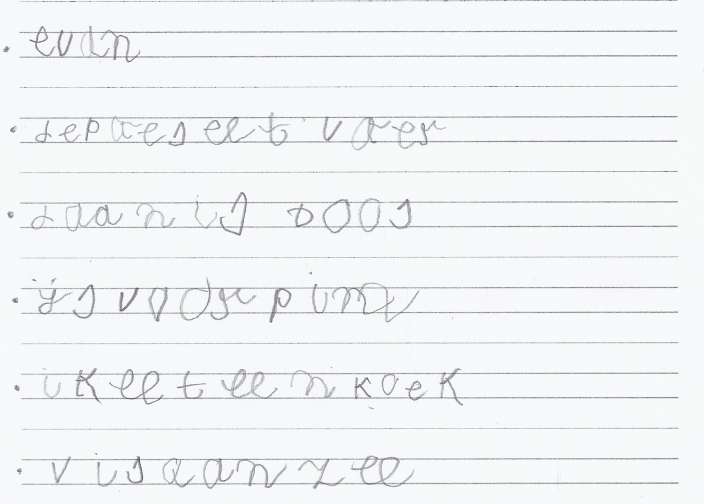 • evan
• de poes eet voer
• daan is boos
• ijs voor pim
• ik eet een koek
• vis aan zee